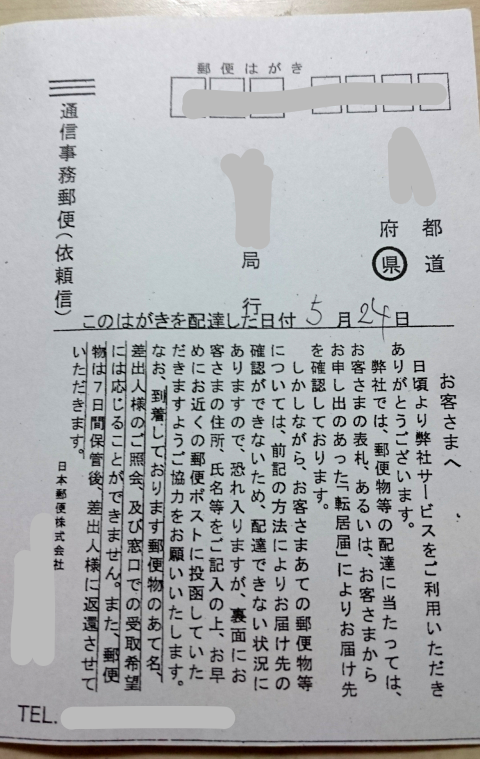 郵便はがき
都道
府県
局
行
通信事務郵便(依頼信)
このはがきを配達した日付 5月24日
お客さまへ
日頃より弊社サービスをご利用いただき
ありがとうございます。
弊社では、郵便物等の配達に当たっては、
お客さまの表札、あるいは、お客さまから
お申し出のあった「転居届」によりお届け先
を確認しております。
しかしながら、お客さまあての郵便物等
については、前記の方法によりお届け先の
確認ができないため、配達できない状況に
ありますので、恐れ入りますが、裏面にお
客さまの住所、氏名等をご記入の上、お早
めにお近くの郵便ポストに投函していた
だきますようご協力をお願いいたします。
なお、到着しております郵便物のあて名、
差出人様のご照会、及び窓口での受取希望
には応じることができません。また、郵便
物は7日間保管後、差出人様に返還させて
いただきます。
日本郵便株式会社
TEL.